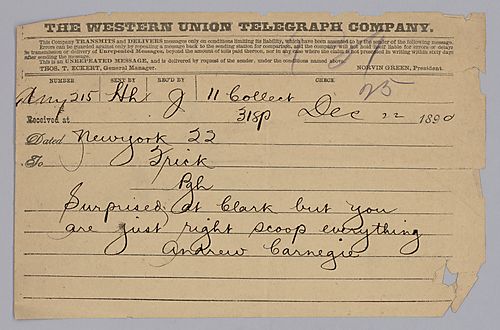 THE WESTERN UNION TELEGRAPH COMPANY.
This Company TRANSMITS and DELIVERS messages only on conditions limiting its liability, which have been assented to by the sender of the following message.
Errors can be guarded against only by repeating a message back to the sending station for comparison, and the company will not hold itself liable for errors or delays
in transmission or delivery of Unrepeated Messages, beyond the amount of tolls paid thereon, nor in any case where the claim is not presented in writing within sixty days
after sending the message.
This is an UNREPEATED MESSAGE, and is delivered by request of the sender, under the conditions named above.
THOS. T. ECKERT, General Manager. NORVIN GREEN, President.
NUMBER SENT BY REC'D BY CHECK
215 Hh J 11 Collect 25
Received at 318p Dec 22 1890
Dated Newyork 22
To Frick
Pgh
Surprised at Clark but you
are just right scoop everything
Andrew Carnegie